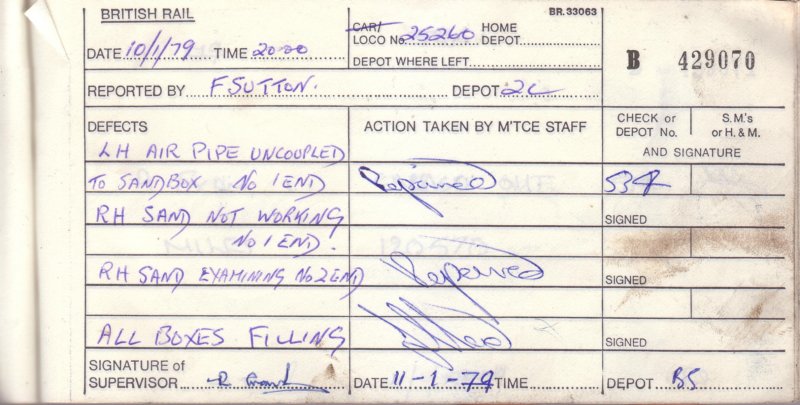 BRITISH RAIL
BR. 33063
DATE 10/1/79 TIME 20.00
CAR/ LOCO No. 25260 HOME DEPOT
DEPOT WHERE LEFT
B 429070
REPORTED BY F SUTTON. DEPOT 2C
DEFECTS
ACTION TAKEN BY M'TCE STAFF
CHECK or DEPOT No.
S.M.'s or H. & M.
AND SIGNATURE
LH AIR PIPE UNCOUPLED
TO SANDBOX No 1 END Repaired 534
RH SAND NOT WORKING SIGNED
No 1 END.
RH SAND EXAMINING No 2 END Repaired SIGNED
ALL BOXES FILLING Filled SIGNED
SIGNATURE of SUPERVISOR
DATE 11-1-79 TIME
DEPOT BS